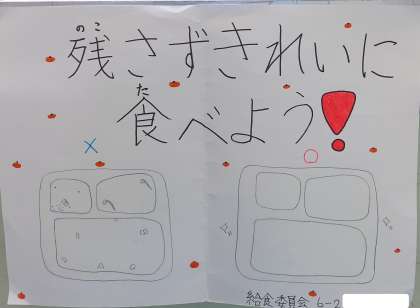 のこ
残さずきれいに
た
食べよう!
× ○
給食委員会 6-2